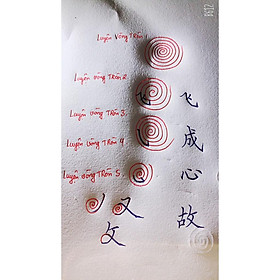 Luyện Vòng Tròn 1
Luyện vòng Tròn 2
飞 飞
Luyện vòng Tròn 3
成
Luyện vòng Tròn 4
心 心
Luyện vòng Tròn 5
又
故
攵